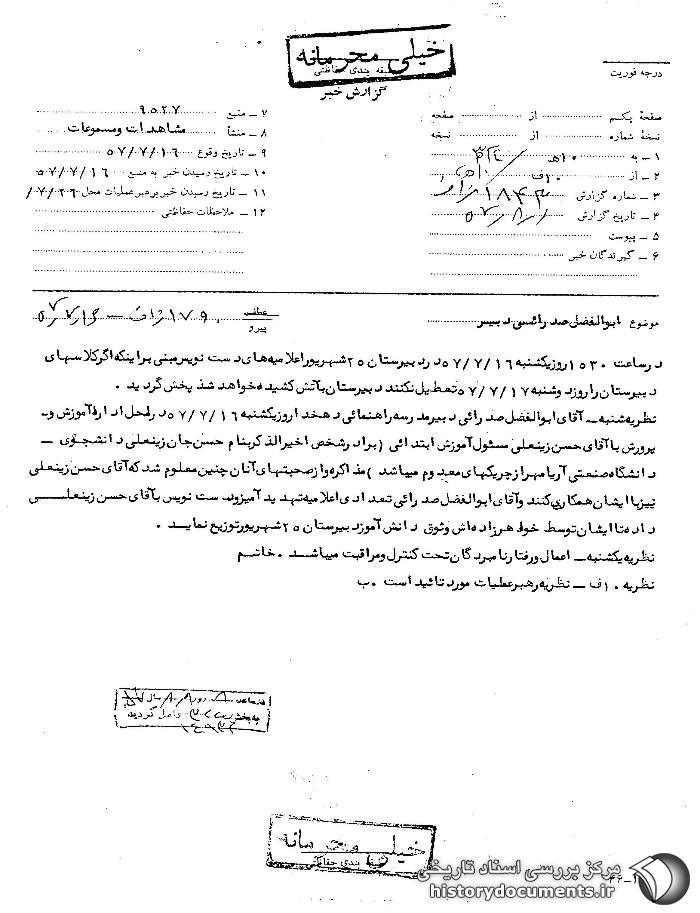 خیلی محرمانه
طبقه بندی حفاظتی
گزارش خبر
درجه فوریت
صفحهٔ یکم از صفحه
نسخهٔ شماره از نسخه
۱ ـ به ۱۰هـ ۳۱۲
۲ ـ از ۱۰ف
۳ ـ شماره گزارش ۱۸۴۳
۴ ـ تاریخ گزارش ۵۷/۸/۱
۵ ـ پیوست
۶ ـ گیرندگان خبر
۷ ـ منبع ۹۵۲۷
۸ ـ منشأ مشاهدات و مسموعات
۹ ـ تاریخ وقوع ۵۷/۷/۱۶
۱۰ ـ تاریخ رسیدن خبر به منبع ۵۷/۷/۱۶
۱۱ ـ تاریخ رسیدن خبر برهبر عملیات محل ۷/۲۶/
۱۲ ـ ملاحظات حفاظتی
موضوع ابوالفضل صدرائی دبیر
عطف
پیرو
درساعت ۱۵۳۰ روز یکشنبه ۵۷/۷/۱۶ درد بیرستان ۲۵ شهریور اعلامیه‌های دست نویس مبنی براینکه اگر کلاسهای
دبیرستان را روز دوشنبه ۵۷/۷/۱۷ تعطیل نکنند دبیرستان بآتش کشیده خواهد شد پخش گردید .
نظریه شنبه ـ آقای ابوالفضل صدرائی دبیر مدرسه راهنمائی دهخدا روز یکشنبه ۵۷/۷/۱۶ در محل اداره آموزش و ـ
پرورش با آقای حسن زینعلی مسئول آموزش ابتدائی (برادر شخص اخیرالذکر بنام حسن جان زینعلی دانشجوی ـ
دانشگاه صنعتی آریامهر از چریکهای معدوم میباشد ) مذاکره و از صحبتهای آنان چنین معلوم شد که آقای حسن زینعلی
نیز با ایشان همکاری کنند و آقای ابوالفضل صدرائی تعدادی اعلامیه تهدید آمیز و دست نویس با آقای حسن زینعلی
داده تا ایشان توسط خواهرزاده‌اش وثوق دانش آموز دبیرستان ۲۵ شهریور توزیع نماید .
نظریه یکشنبه ـ اعمال و رفتار نامبردگان تحت کنترل و مراقبت میباشد . خاتم
نظریه ۱۰ف ـ نظریه رهبر عملیات مورد تائید است . ب
در ساعت روز سال
به بخش ۳۱۲ واصل گردید
خیلی محرمانه
طبقه بندی حفاظتی
مرکز بررسی اسناد تاریخی
historydocuments.ir